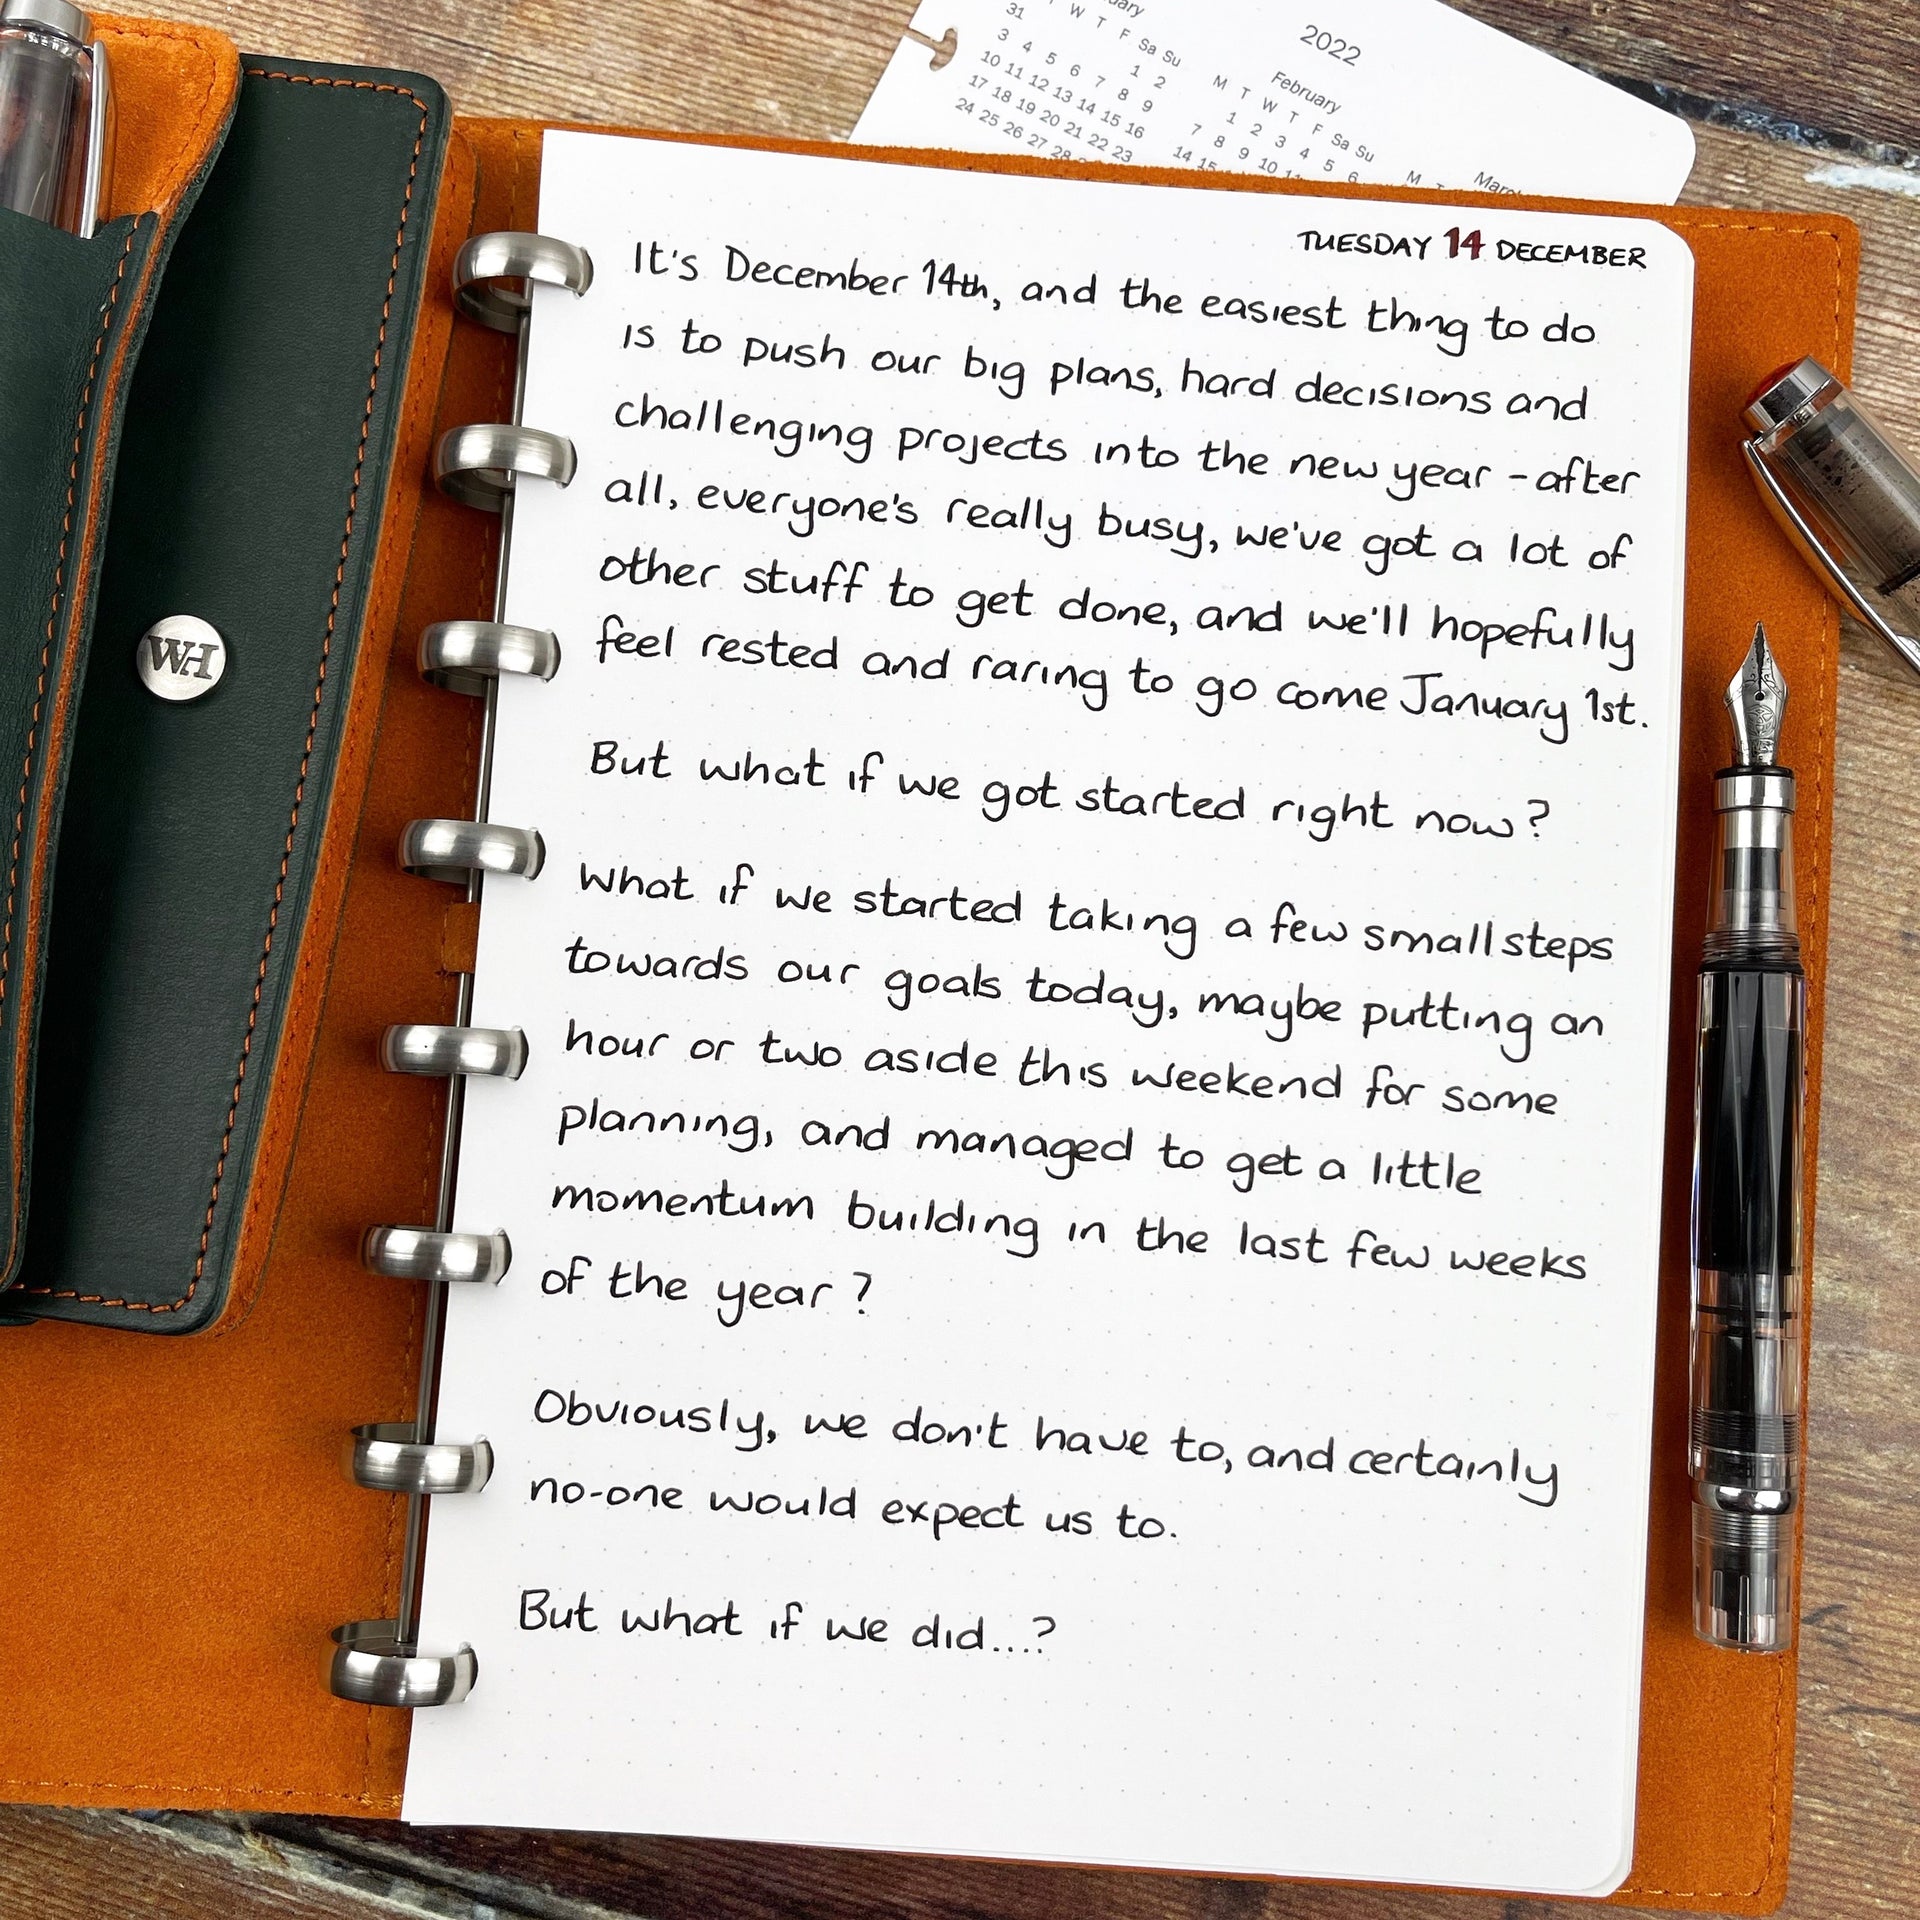 2022
ary
W T F Sa Su
31
1 2
3 4 5 6 7 8 9
10 11 12 13 14 15 16
17 18 19 20 21 22 23
24 25 26 27 28
February
M T W T F Sa Su
1 2 3 4 5 6
7 8 9 10 11
14 15
Marc
M T
TUESDAY 14 DECEMBER
It's December 14th, and the easiest thing to do
is to push our big plans, hard decisions and
challenging projects into the new year - after
all, everyone's really busy, we've got a lot of
other stuff to get done, and we'll hopefully
feel rested and raring to go come January 1st.
But what if we got started right now?
What if we started taking a few small steps
towards our goals today, maybe putting an
hour or two aside this weekend for some
planning, and managed to get a little
momentum building in the last few weeks
of the year?
Obviously, we don't have to, and certainly
no-one would expect us to.
But what if we did...?
WH